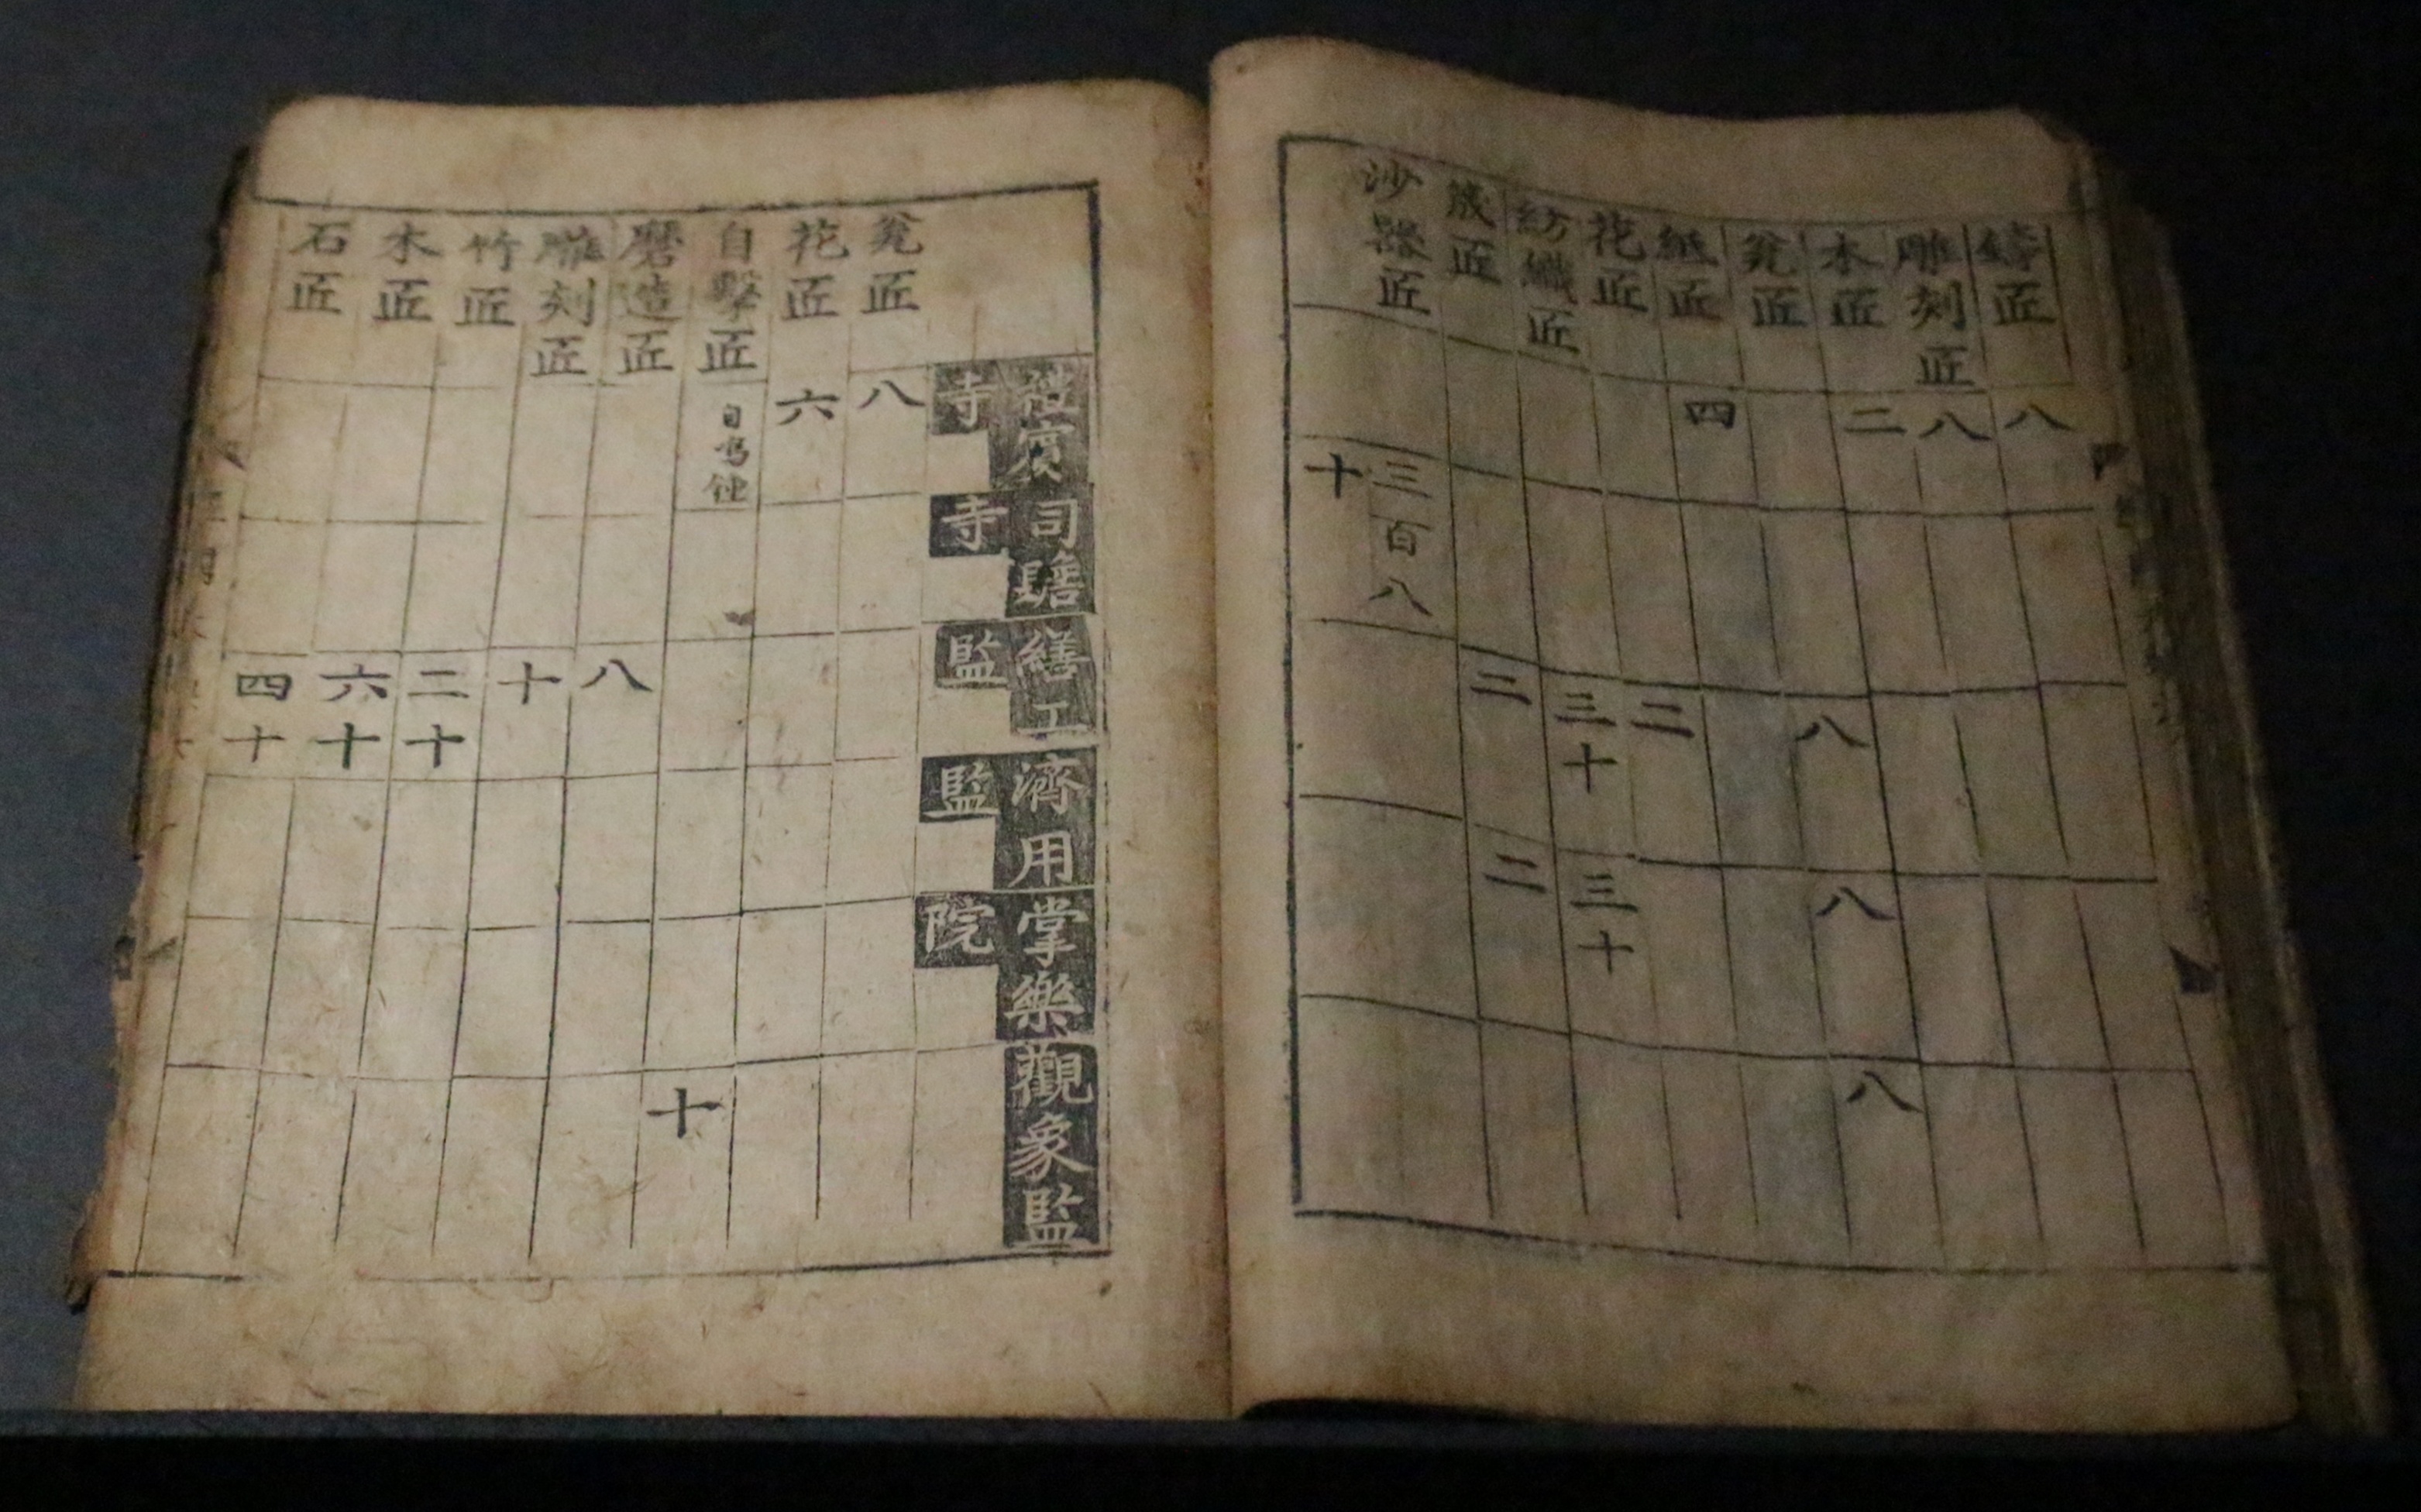 鑄匠 八
雕刻匠 八
木匠 二
瓮匠 八 八 八
紙匠 四
花匠 二
紡織匠 三十 三十
筬匠 二 二
沙器匠 三百八十
禮賓寺 司贍寺 繕工監 濟用監 掌樂院 觀象監
瓮匠 八
花匠 六
自擊匠 自鸣锺 十
磨造匠 八
雕刻匠 十
竹匠 二十
木匠 六十
石匠 四十